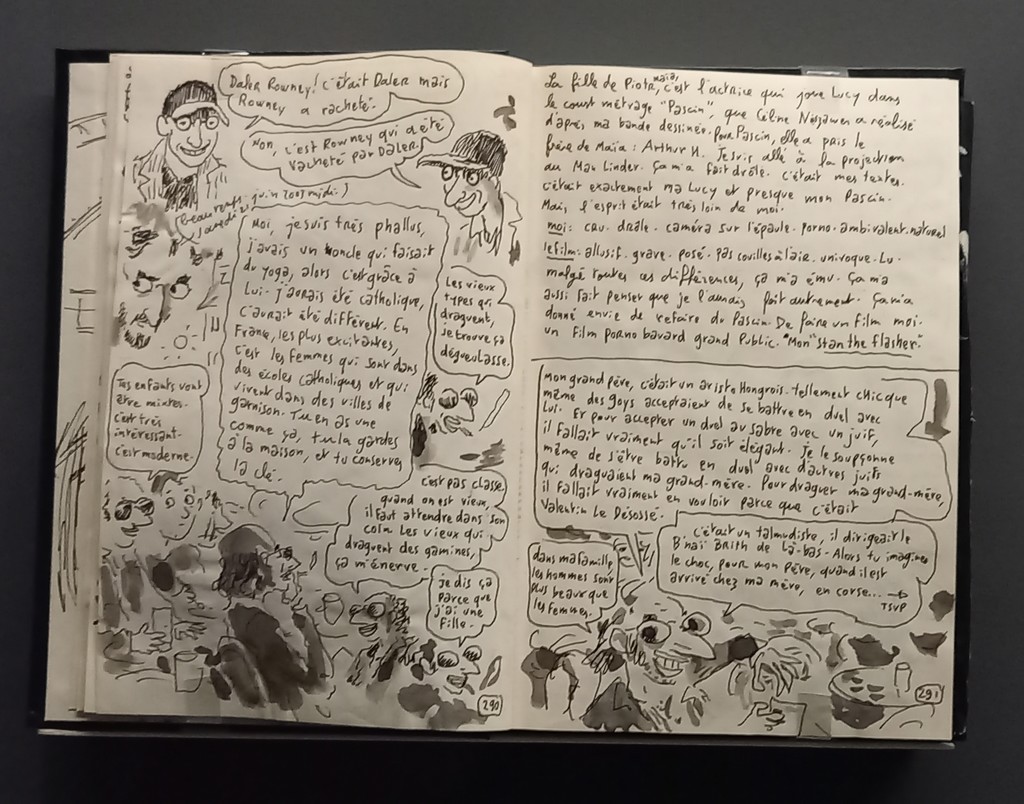 Daler Rowney! c'était Daler mais
Rowney a racheté.
Non, c'est Rowney qui a été
racheté par Daler.
juin 2003 midi.)
Moi, je suis très phallus,
j'avais un oncle qui faisait
du yoga, alors c'est grâce à
lui. j'aurais été catholique,
c'aurait été différent. En
France, les plus excitantes,
c'est les femmes qui sont dans
des écoles catholiques et qui
vivent dans des villes de
garnison. Tu en as une
comme ça, tu la gardes
à la maison, et tu conserves
la clé.
Les vieux
types qui
draguent,
je trouve ça
dégueulasse.
Tes enfants vont
être mixtes.
c'est très
intéressant.
c'est moderne.
c'est pas classe
quand on est vieux,
il faut attendre dans son
coin. Les vieux qui
draguent des gamines,
ça m'énerve.
je dis ça
parce que
j'ai une
fille.
290
La fille de Piotr, Maïa, c'est l'actrice qui joue Lucy dans
le court métrage "Pascin", que Céline a réalisé
d'après ma bande dessinée. Pour Pascin, elle a pris le
frère de Maïa : Arthur H. Je suis allé à la projection
au Max Linder. Ça m'a fait drôle. C'était mes textes.
C'était exactement ma Lucy et presque mon Pascin.
Mais, l'esprit était très loin de moi.
moi: cru. drôle. caméra sur l'épaule. porno. ambivalent. naturel
le film: allusif. grave. posé. pas couilles à l'air. univoque. Lu.
malgré toutes ces différences, ça m'a ému. Ça m'a
aussi fait penser que je l'aurais fait autrement. Ça m'a
donné envie de refaire du Pascin. De faire un film moi.
un film porno bavard grand public. "Mon" stan the flasher.
Mon grand père, c'était un aristo Hongrois. tellement chic que
même des goys acceptaient de se battre en duel avec
lui. Et pour accepter un duel au sabre avec un juif,
il fallait vraiment qu'il soit élégant. Je le soupçonne
même de s'être battu en duel avec d'autres juifs
qui draguaient ma grand-mère. Pour draguer ma grand-mère,
il fallait vraiment en vouloir parce que c'était
Valentin Le Désossé.
c'était un talmudiste, il dirigeait le
B'naï Brith de là-bas. Alors tu imagines
le choc, pour mon père, quand il est
arrivé chez ma mère, en corse... →
TSVP
dans ma famille
les hommes sont
plus beaux que
les femmes.
291